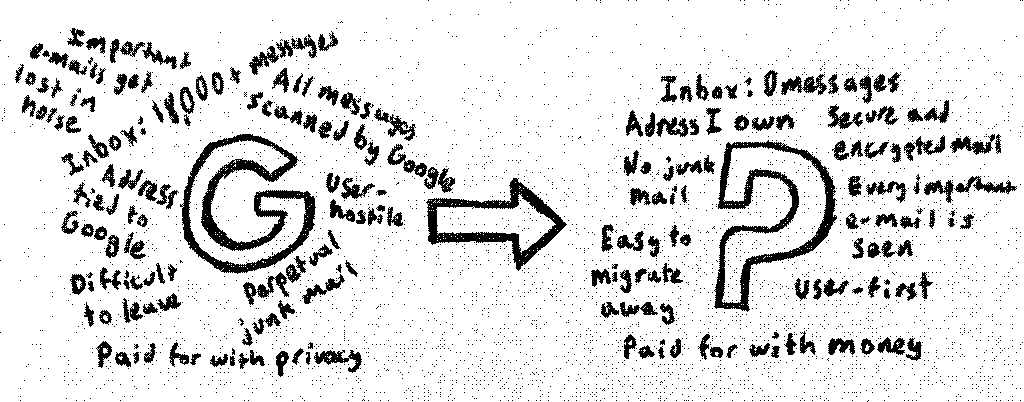 Important
e-mails get
lost in
noise
Inbox: 18,000+ messages
All messages
scanned by Google
Address
tied to
Google
G
User-
hostile
Difficult
to leave
Perpetual
junk mail
Paid for with privacy
Inbox: 0 messages
Adress I own
Secure and
encrypted mail
No junk
mail
P
Every important
e-mail is
seen
Easy to
migrate
away
User-first
Paid for with money